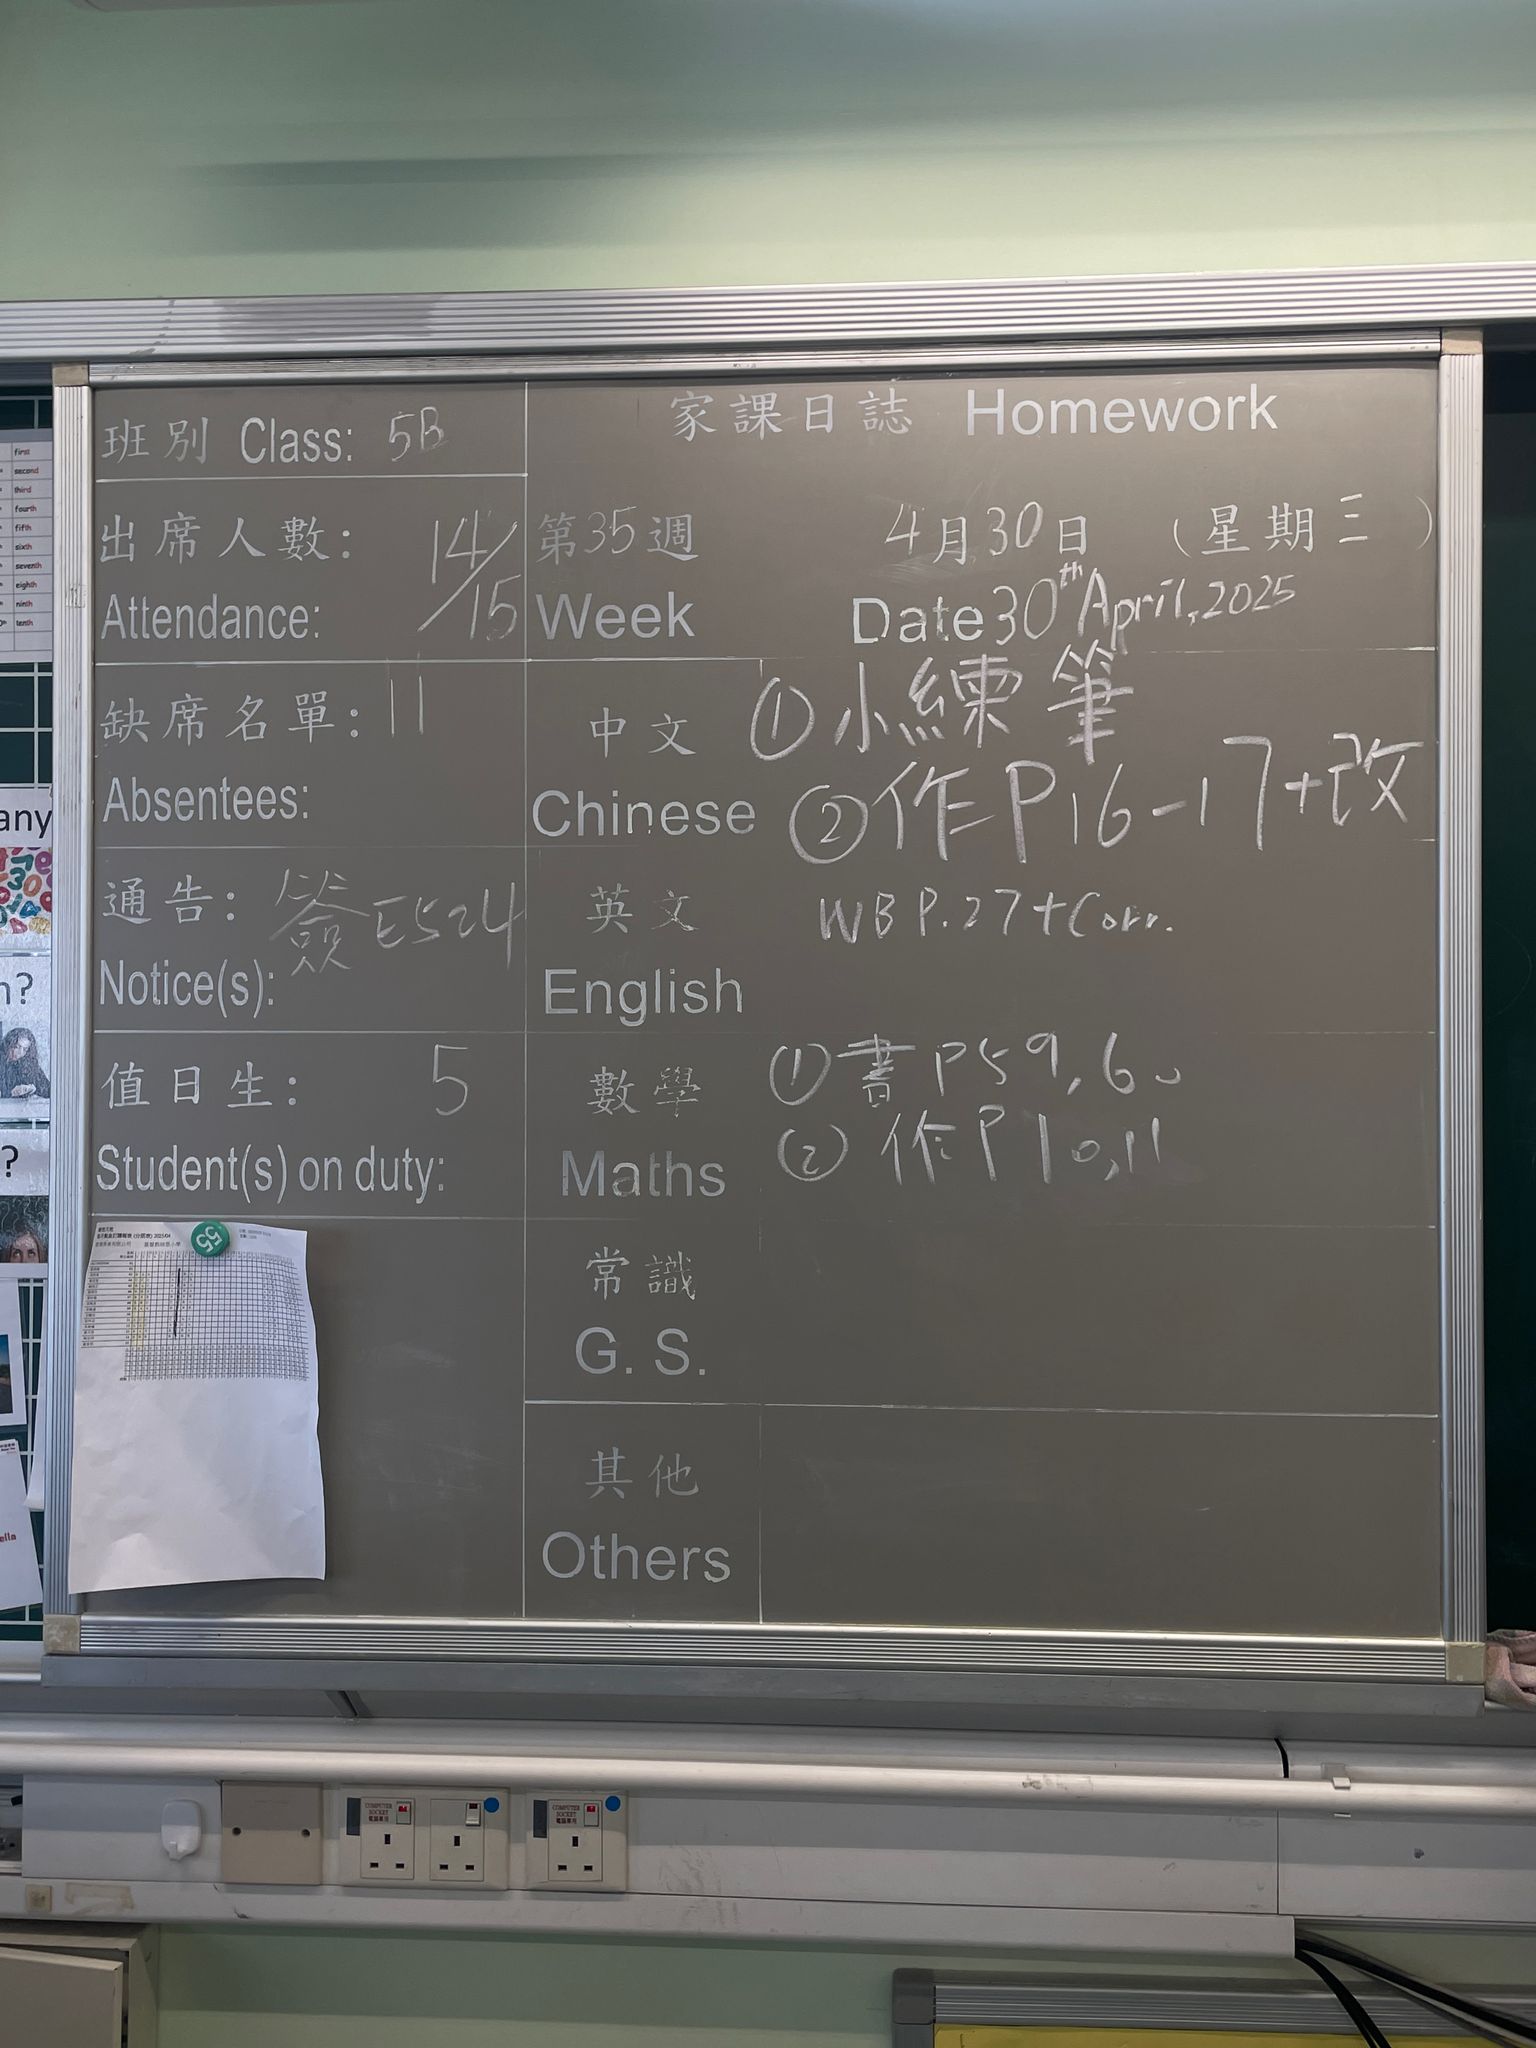 班別 Class: 5B
出席人數: 14/15
Attendance:
缺席名單: 11
Absentees:
通告: 簽E524
Notice(s):
值日生: 5
Student(s) on duty:
家課日誌 Homework
第35週 4月30日 (星期三)
Week Date 30th April, 2025
中文 ①小練筆
Chinese ②作P16-17+改
英文 WB P.27+Corr.
English
數學 ①書P59,60
Maths ②作P10,11
常識
G. S.
其他
Others
55
first
second
third
fourth
fifth
sixth
seventh
eighth
ninth
tenth
any
?
?
ella
COMPUTER SOCKET
電腦專用
COMPUTER SOCKET
電腦專用